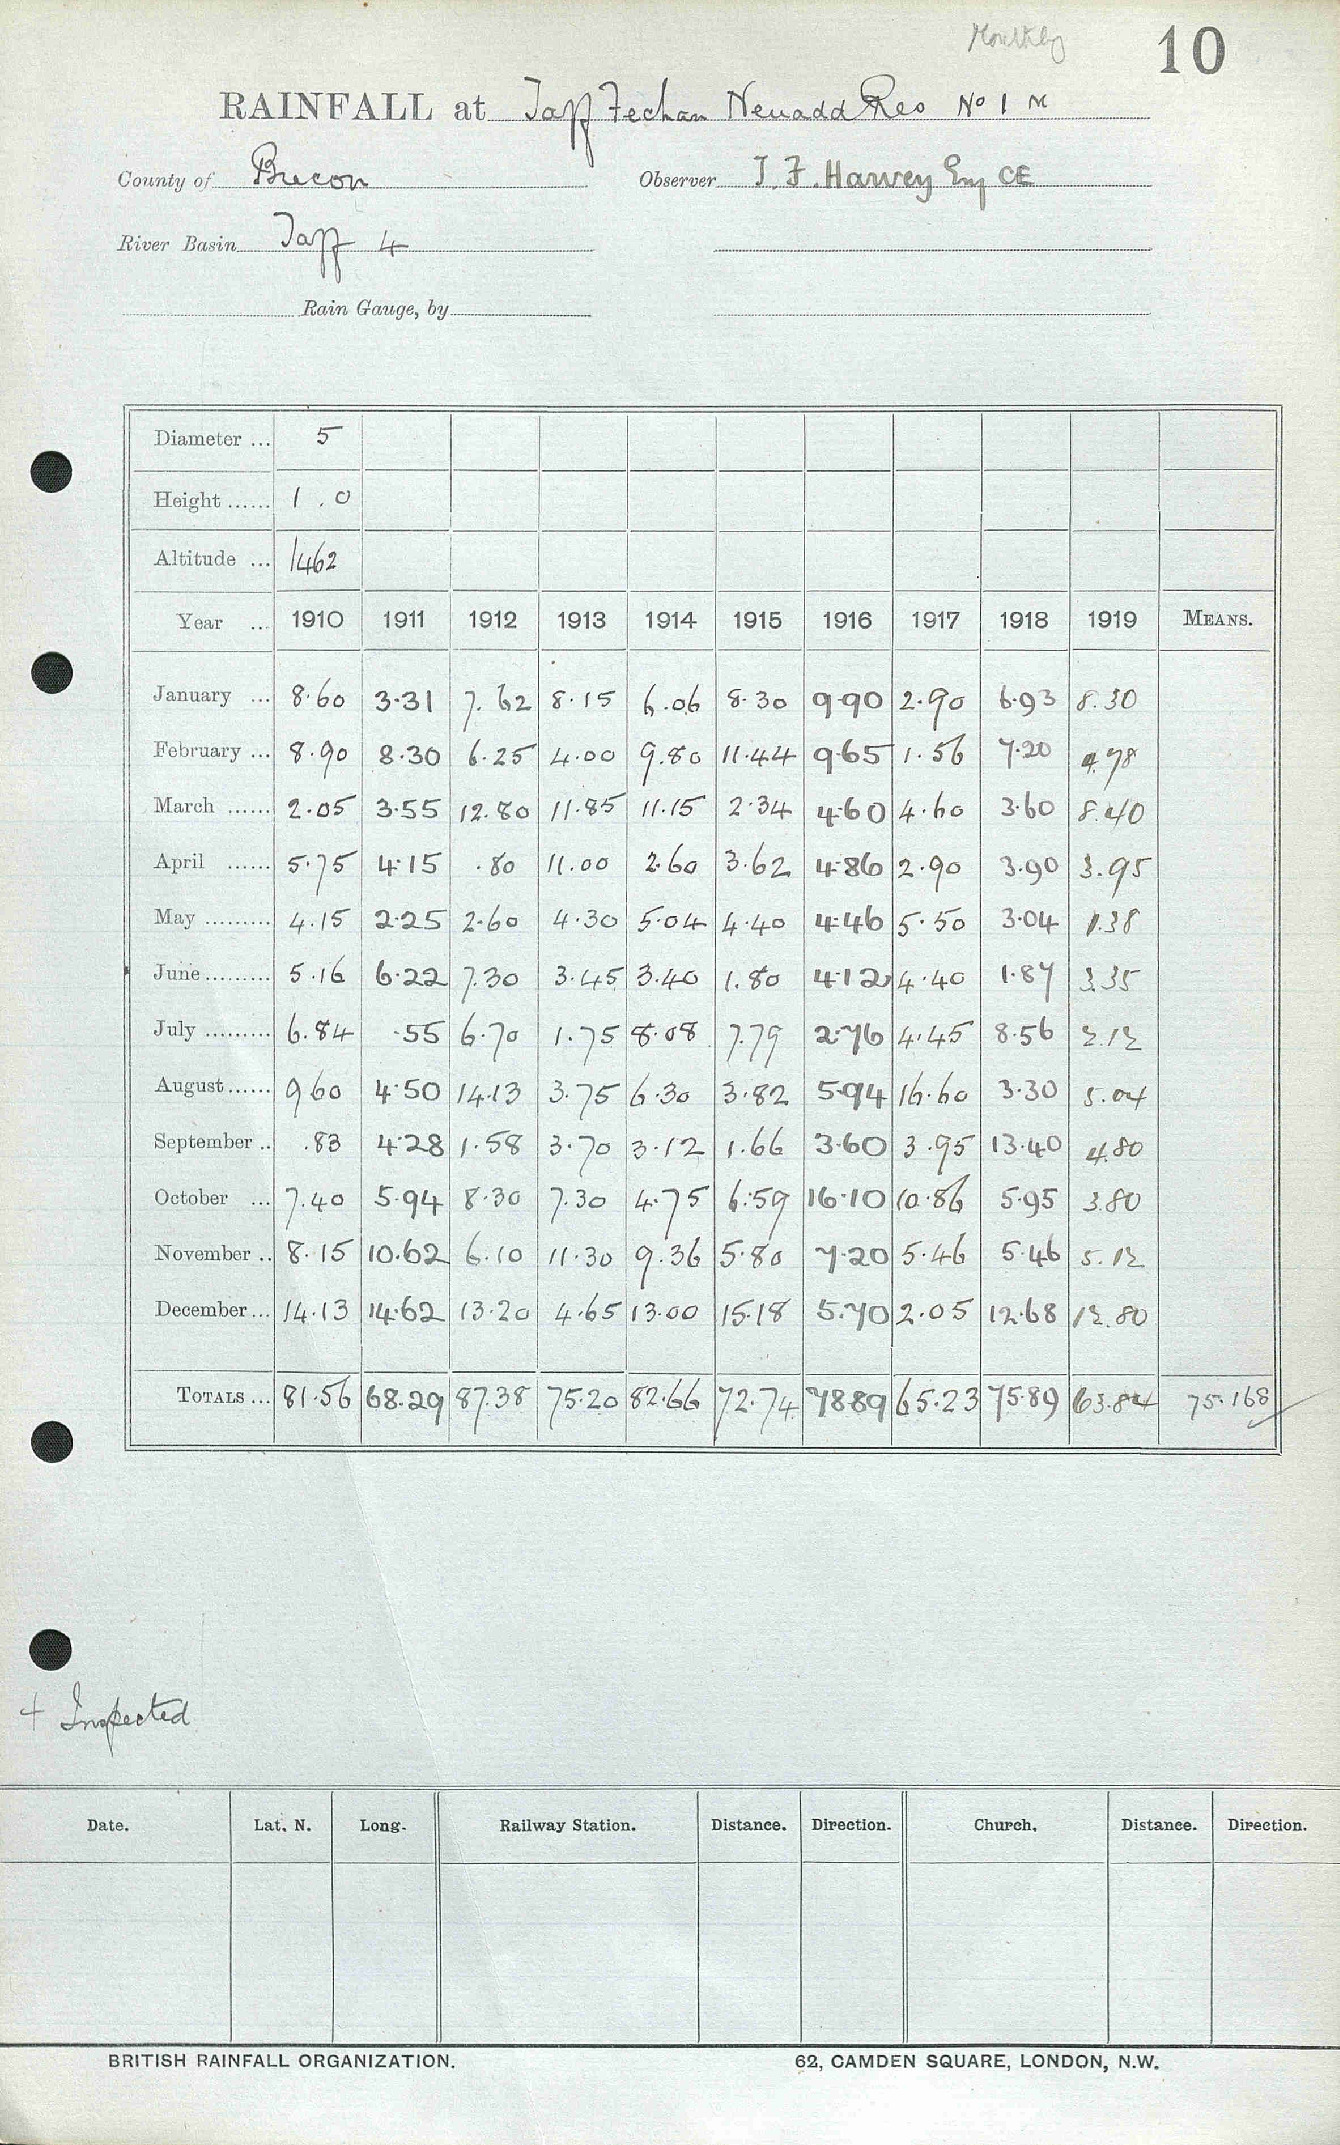 Monthly 10
RAINFALL at Taff Fechan Neuadd Res No 1 M
County of Brecon Observer T. F. Harvey Esq CE
River Basin Taff 4
Rain Gauge, by
Diameter ... 5
Height ...... 1 . 0
Altitude ... 1462
Year ... 1910 1911 1912 1913 1914 1915 1916 1917 1918 1919 MEANS.
January ... 8.60 3.31 7.62 8.15 6.06 8.30 9.90 2.90 6.93 8.30
February ... 8.90 8.30 6.25 4.00 9.80 11.44 9.65 1.56 7.20 4.78
March ...... 2.05 3.55 12.80 11.85 11.15 2.34 4.60 4.60 3.60 8.40
April ...... 5.75 4.15 .80 11.00 2.60 3.62 4.86 2.90 3.90 3.95
May ......... 4.15 2.25 2.60 4.30 5.04 4.40 4.46 5.50 3.04 1.38
June ......... 5.16 6.22 7.30 3.45 3.40 1.80 4.12 4.40 1.87 3.35
July ......... 6.84 .55 6.70 1.75 8.08 7.79 2.76 4.45 8.56 2.12
August ...... 9.60 4.50 14.13 3.75 6.30 3.82 5.94 16.60 3.30 5.04
September .. .83 4.28 1.58 3.70 3.12 1.66 3.60 3.95 13.40 4.80
October ... 7.40 5.94 8.30 7.30 4.75 6.59 16.10 10.86 5.95 3.80
November .. 8.15 10.62 6.10 11.30 9.36 5.80 7.20 5.46 5.46 5.12
December ... 14.13 14.62 13.20 4.65 13.00 15.18 5.70 2.05 12.68 12.80
TOTALS ... 81.56 68.29 87.38 75.20 82.66 72.74 78.89 65.23 75.89 63.84 75.168
+ Inspected
Date. Lat. N. Long. Railway Station. Distance. Direction. Church. Distance. Direction.
BRITISH RAINFALL ORGANIZATION. 62, CAMDEN SQUARE, LONDON, N.W.